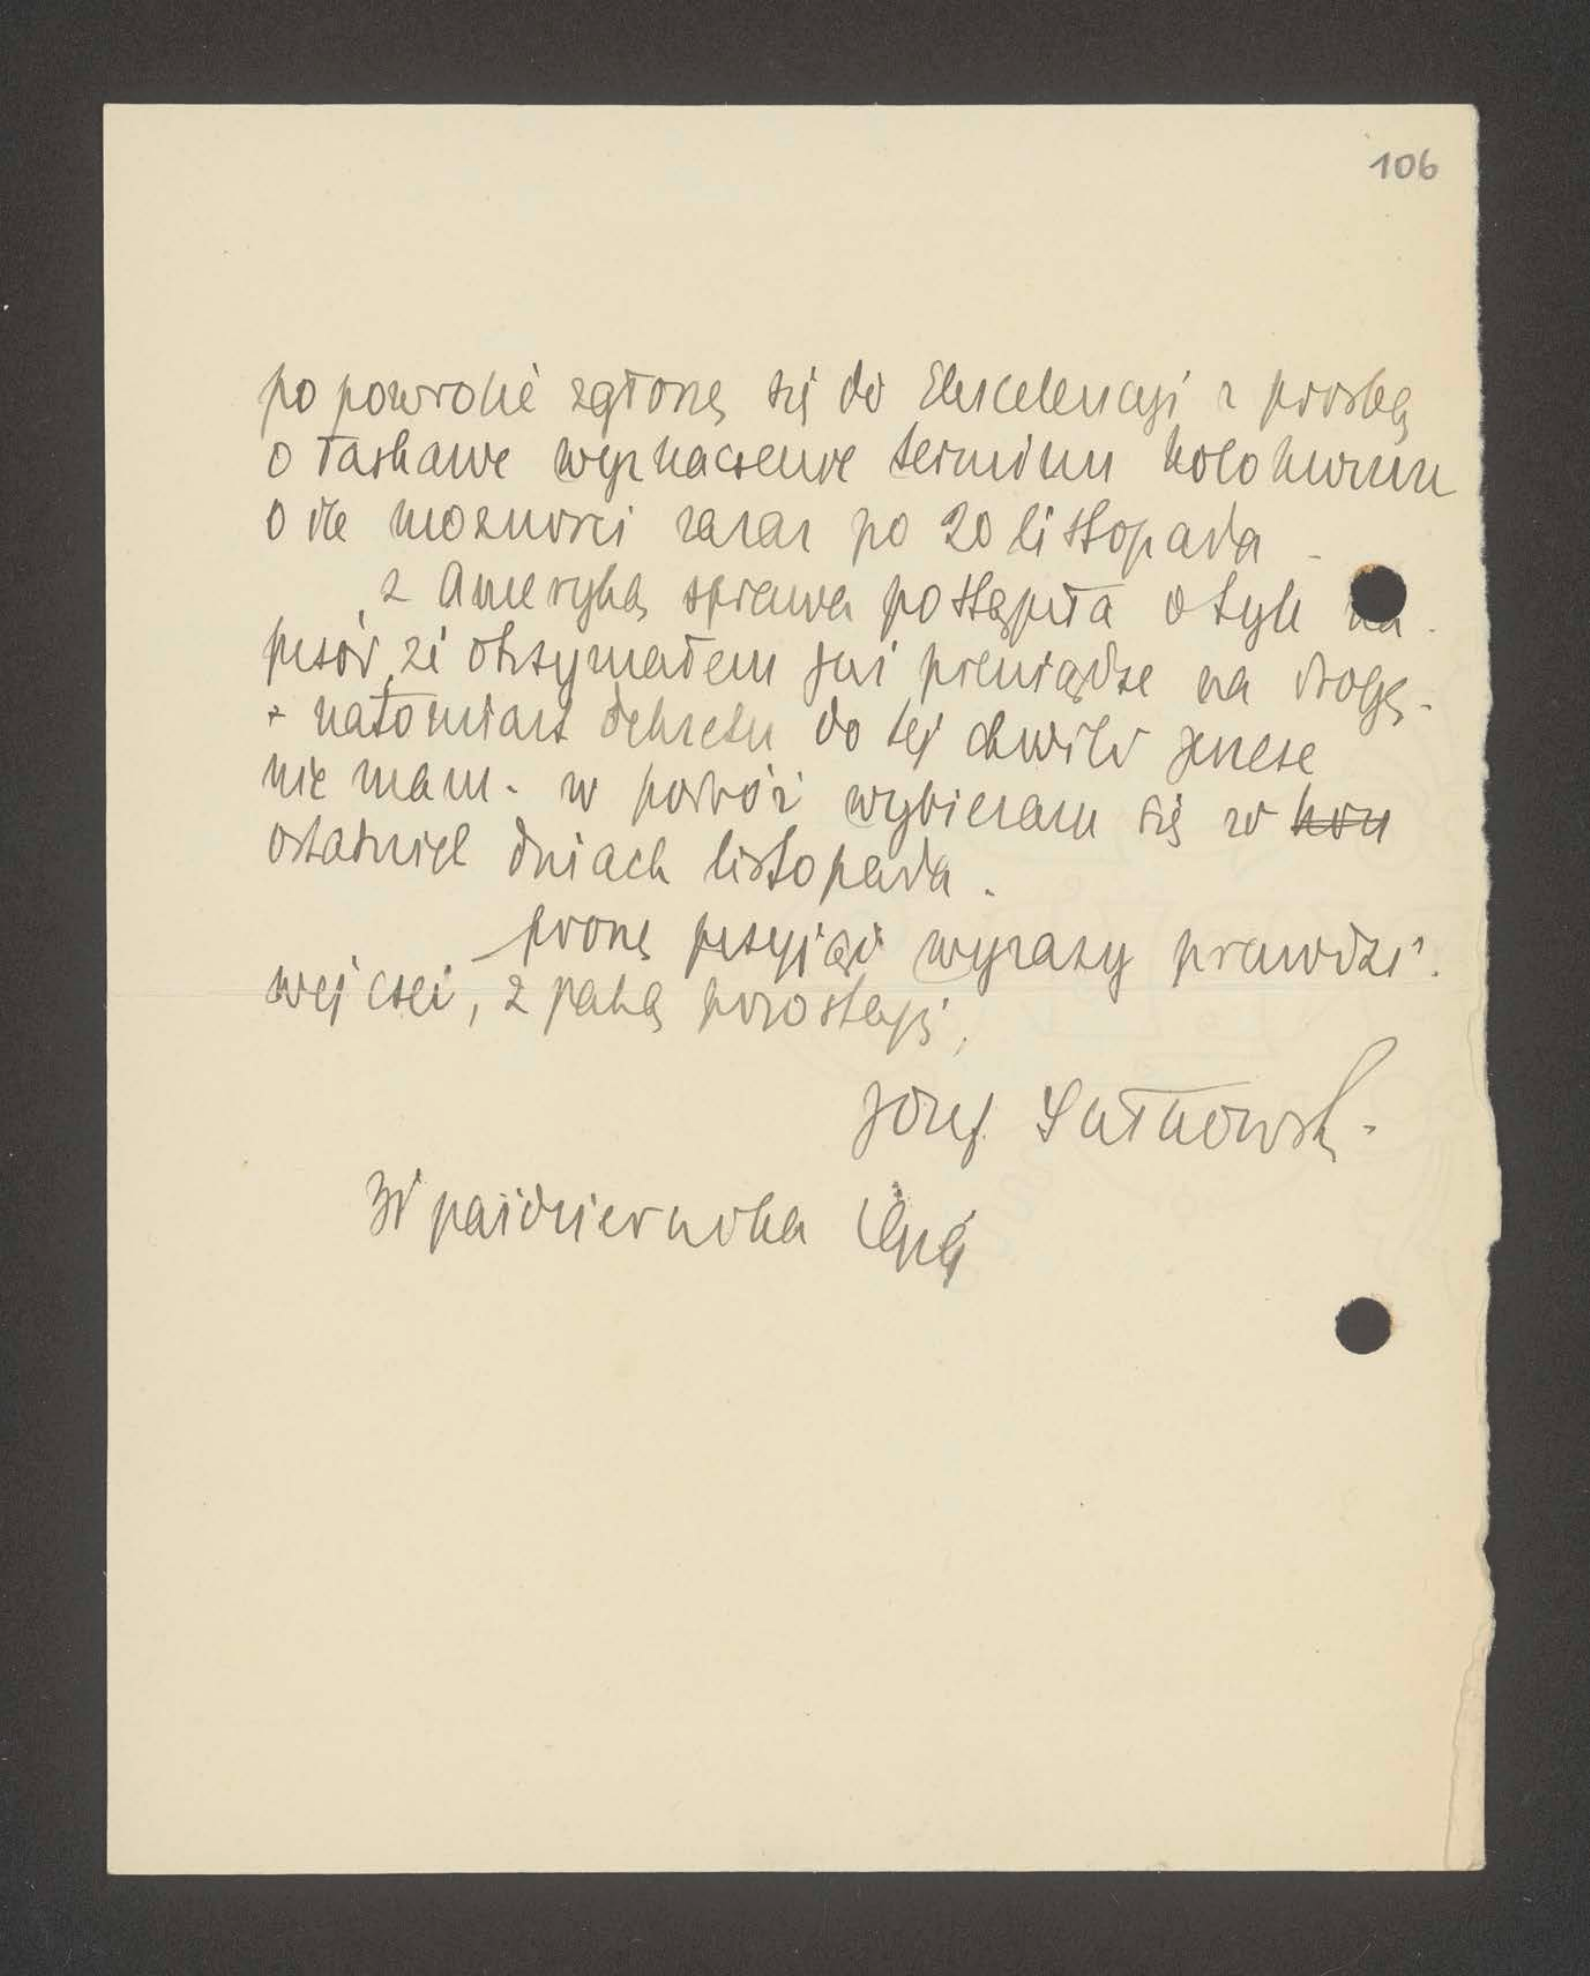 106
po powrocie zgłoszę się do Ekscelencji z prośbą
o łaskawe wyznaczenie terminu kolokwium
o ile możności zaraz po 20 listopada
z Ameryką sprawa postąpiła o tyle na
przód, że otrzymałem już pieniądze na drogę.
natomiast dekretu do tej chwili jeszcze
nie mam. w podróż wybieram się w kon
ostatnich dniach listopada.
proszę przyjąć wyrazy prawdzi
wej czci, z jaką pozostaję,
Józef Gałkowski
października